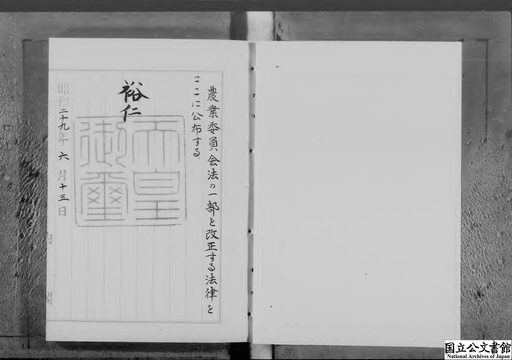 農業委員会法の一部を改正する法律を
ここに公布する
裕仁
天皇
御璽
昭和二十九年六月十五日
国立公文書館
National Archives of Japan